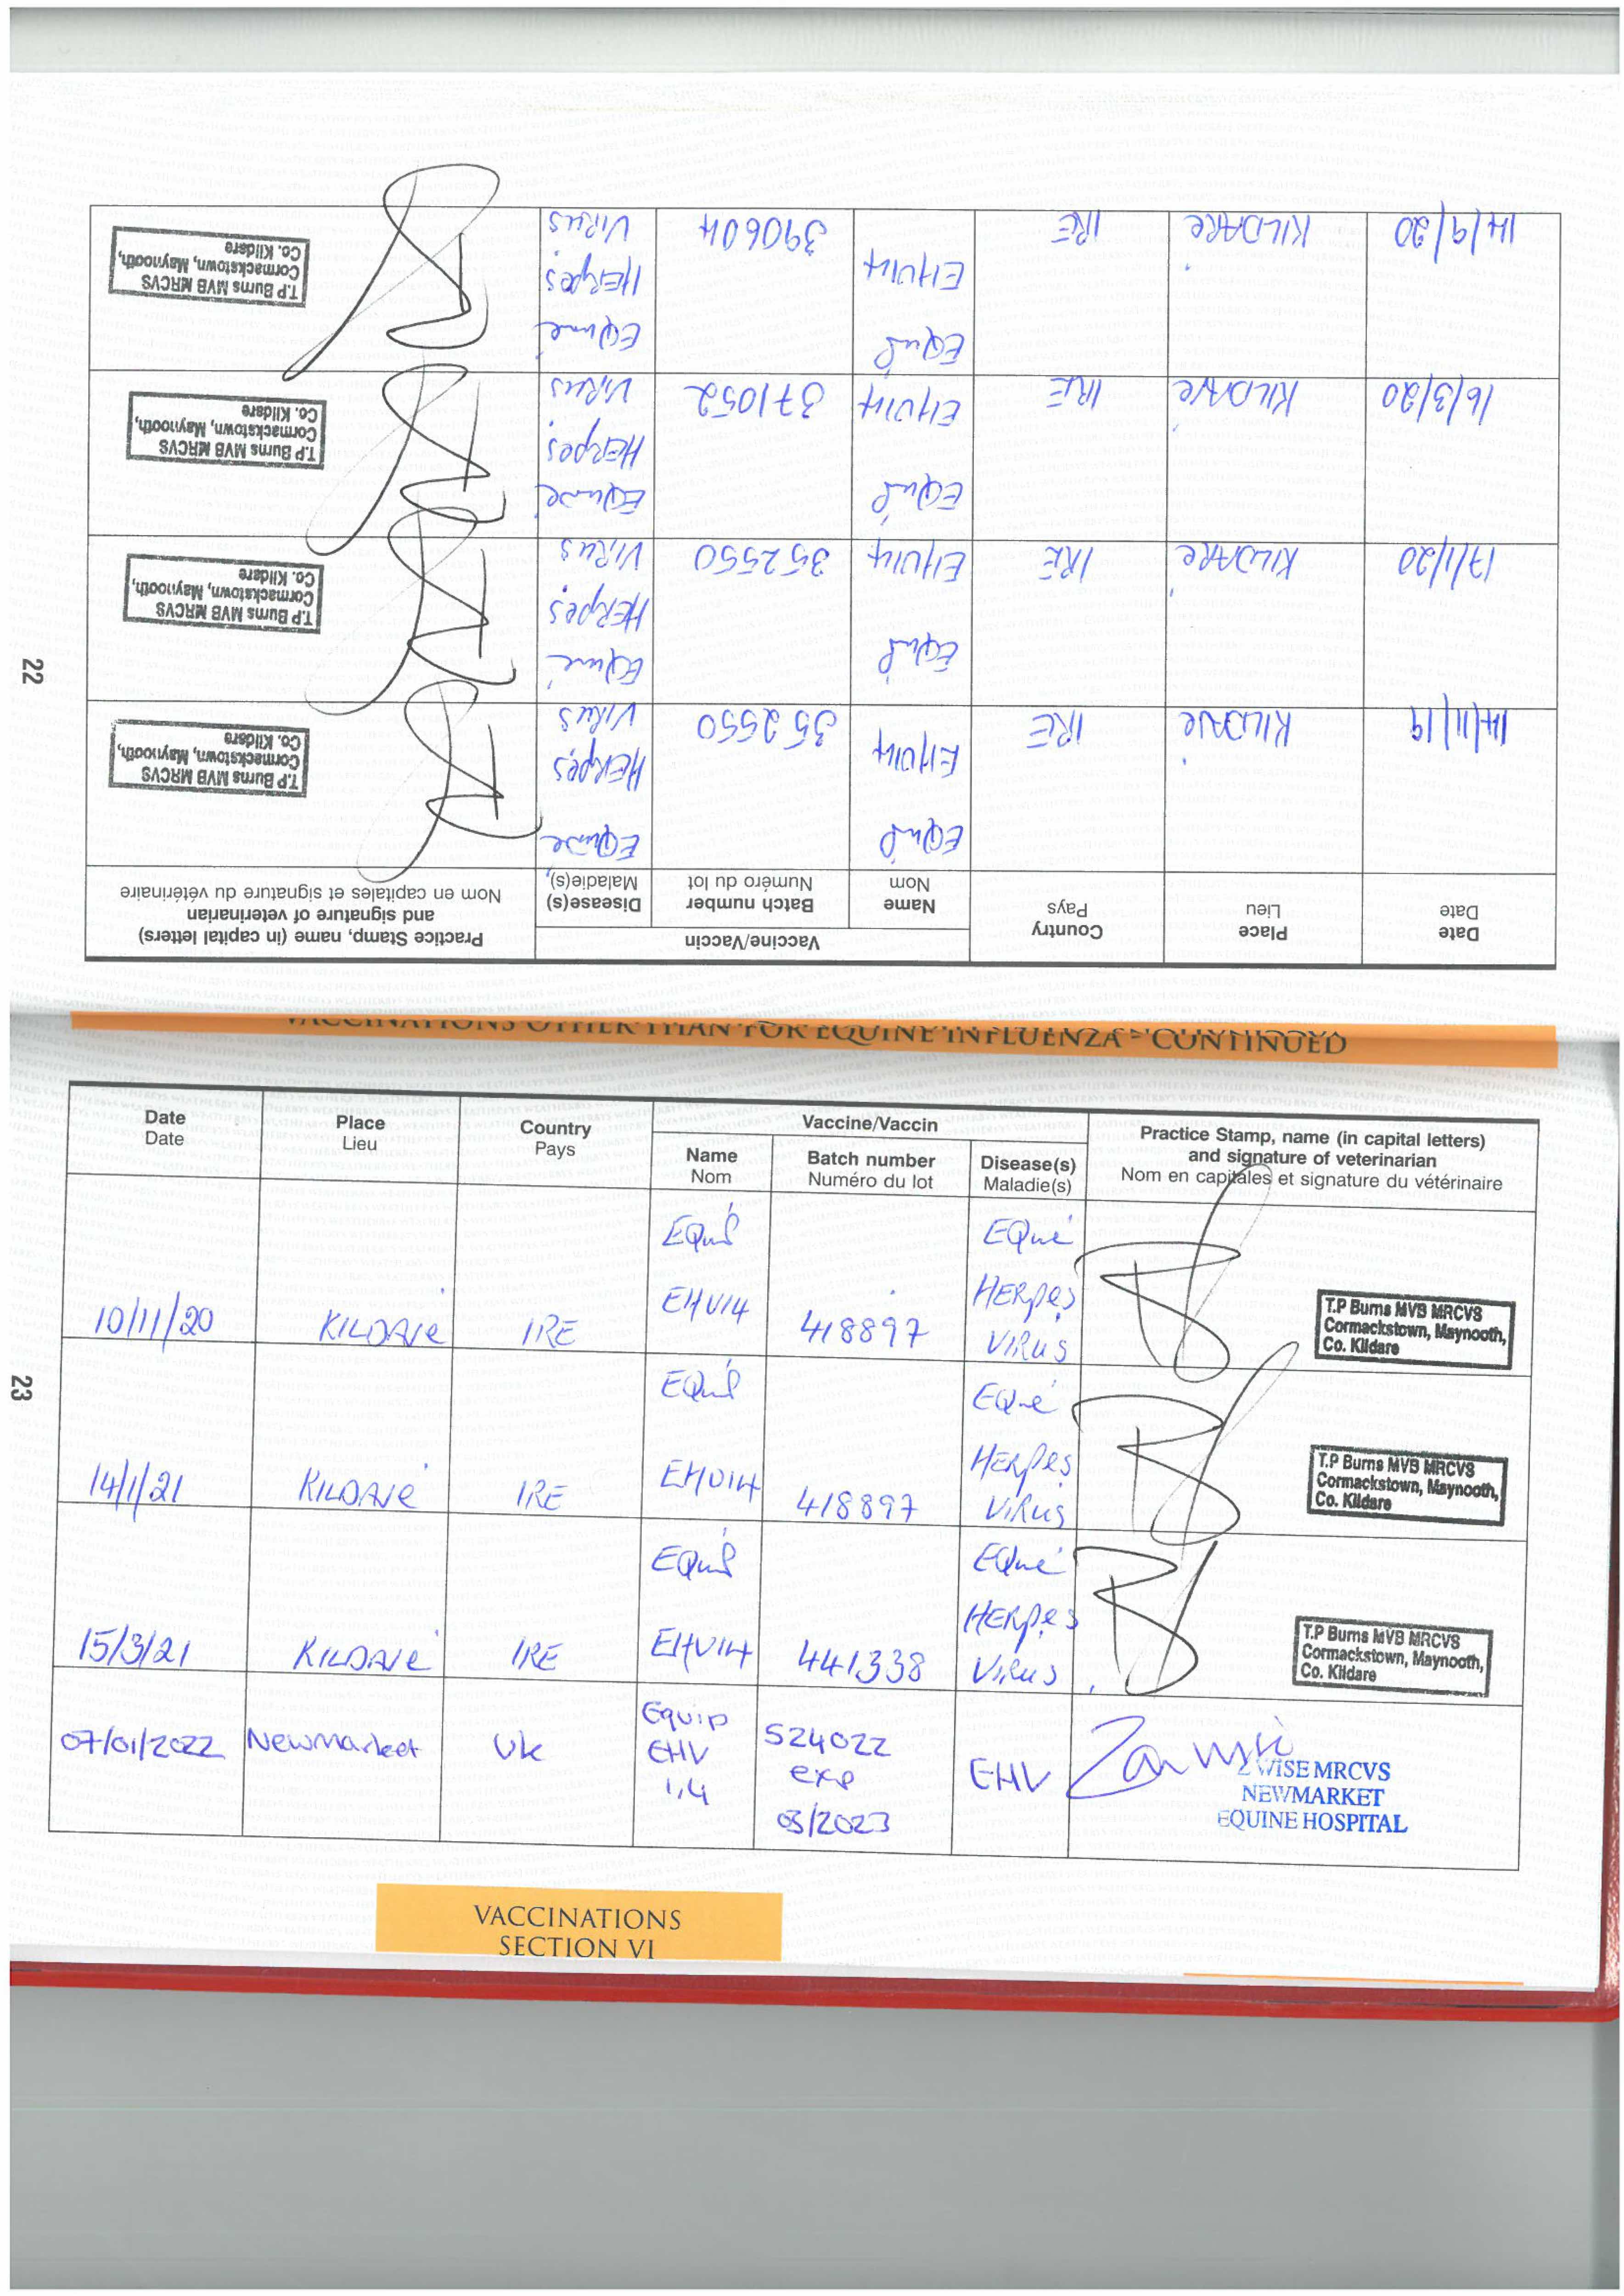 Date
Date
Place
Lieu
Country
Pays
Vaccine/Vaccin
Name
Nom
Batch number
Numéro du lot
Disease(s)
Maladie(s)
Practice Stamp, name (in capital letters)
and signature of veterinarian
Nom en capitales et signature du vétérinaire
14/11/19
KILDARE
IRE
Equip
EHV14
352550
Equine
HERpes
VIRUS
T.P Burns MVB MRCVS
Cormackstown, Maynooth,
Co. Kildare
17/1/20
KILDARE
IRE
Equip
EHV14
352550
Equine
HERpes
VIRUS
T.P Burns MVB MRCVS
Cormackstown, Maynooth,
Co. Kildare
16/3/20
KILDARE
IRE
Equip
EHV14
371052
Equine
HERpes
VIRUS
T.P Burns MVB MRCVS
Cormackstown, Maynooth,
Co. Kildare
14/9/20
KILDARE
IRE
Equip
EHV14
390604
Equine
HERpes
VIRUS
T.P Burns MVB MRCVS
Cormackstown, Maynooth,
Co. Kildare
22
VACCINATIONS OTHER THAN FOR EQUINE INFLUENZA - CONTINUED
Date
Date
Place
Lieu
Country
Pays
Vaccine/Vaccin
Name
Nom
Batch number
Numéro du lot
Disease(s)
Maladie(s)
Practice Stamp, name (in capital letters)
and signature of veterinarian
Nom en capitales et signature du vétérinaire
10/11/20
KILDARE
IRE
Equip
EHV14
418897
Equine
HERpes
VIRUS
T.P Burns MVB MRCVS
Cormackstown, Maynooth,
Co. Kildare
14/1/21
KILDARE
IRE
Equip
EHV14
418897
Equine
HERpes
VIRUS
T.P Burns MVB MRCVS
Cormackstown, Maynooth,
Co. Kildare
15/3/21
KILDARE
IRE
Equip
EHV14
441338
Equine
HERpes
VIRUS
T.P Burns MVB MRCVS
Cormackstown, Maynooth,
Co. Kildare
07/01/2022
Newmarket
Uk
Equip
EHV
1,4
524022
exp
03/2023
EHV
Z WISE MRCVS
NEWMARKET
EQUINE HOSPITAL
23
VACCINATIONS
SECTION VI